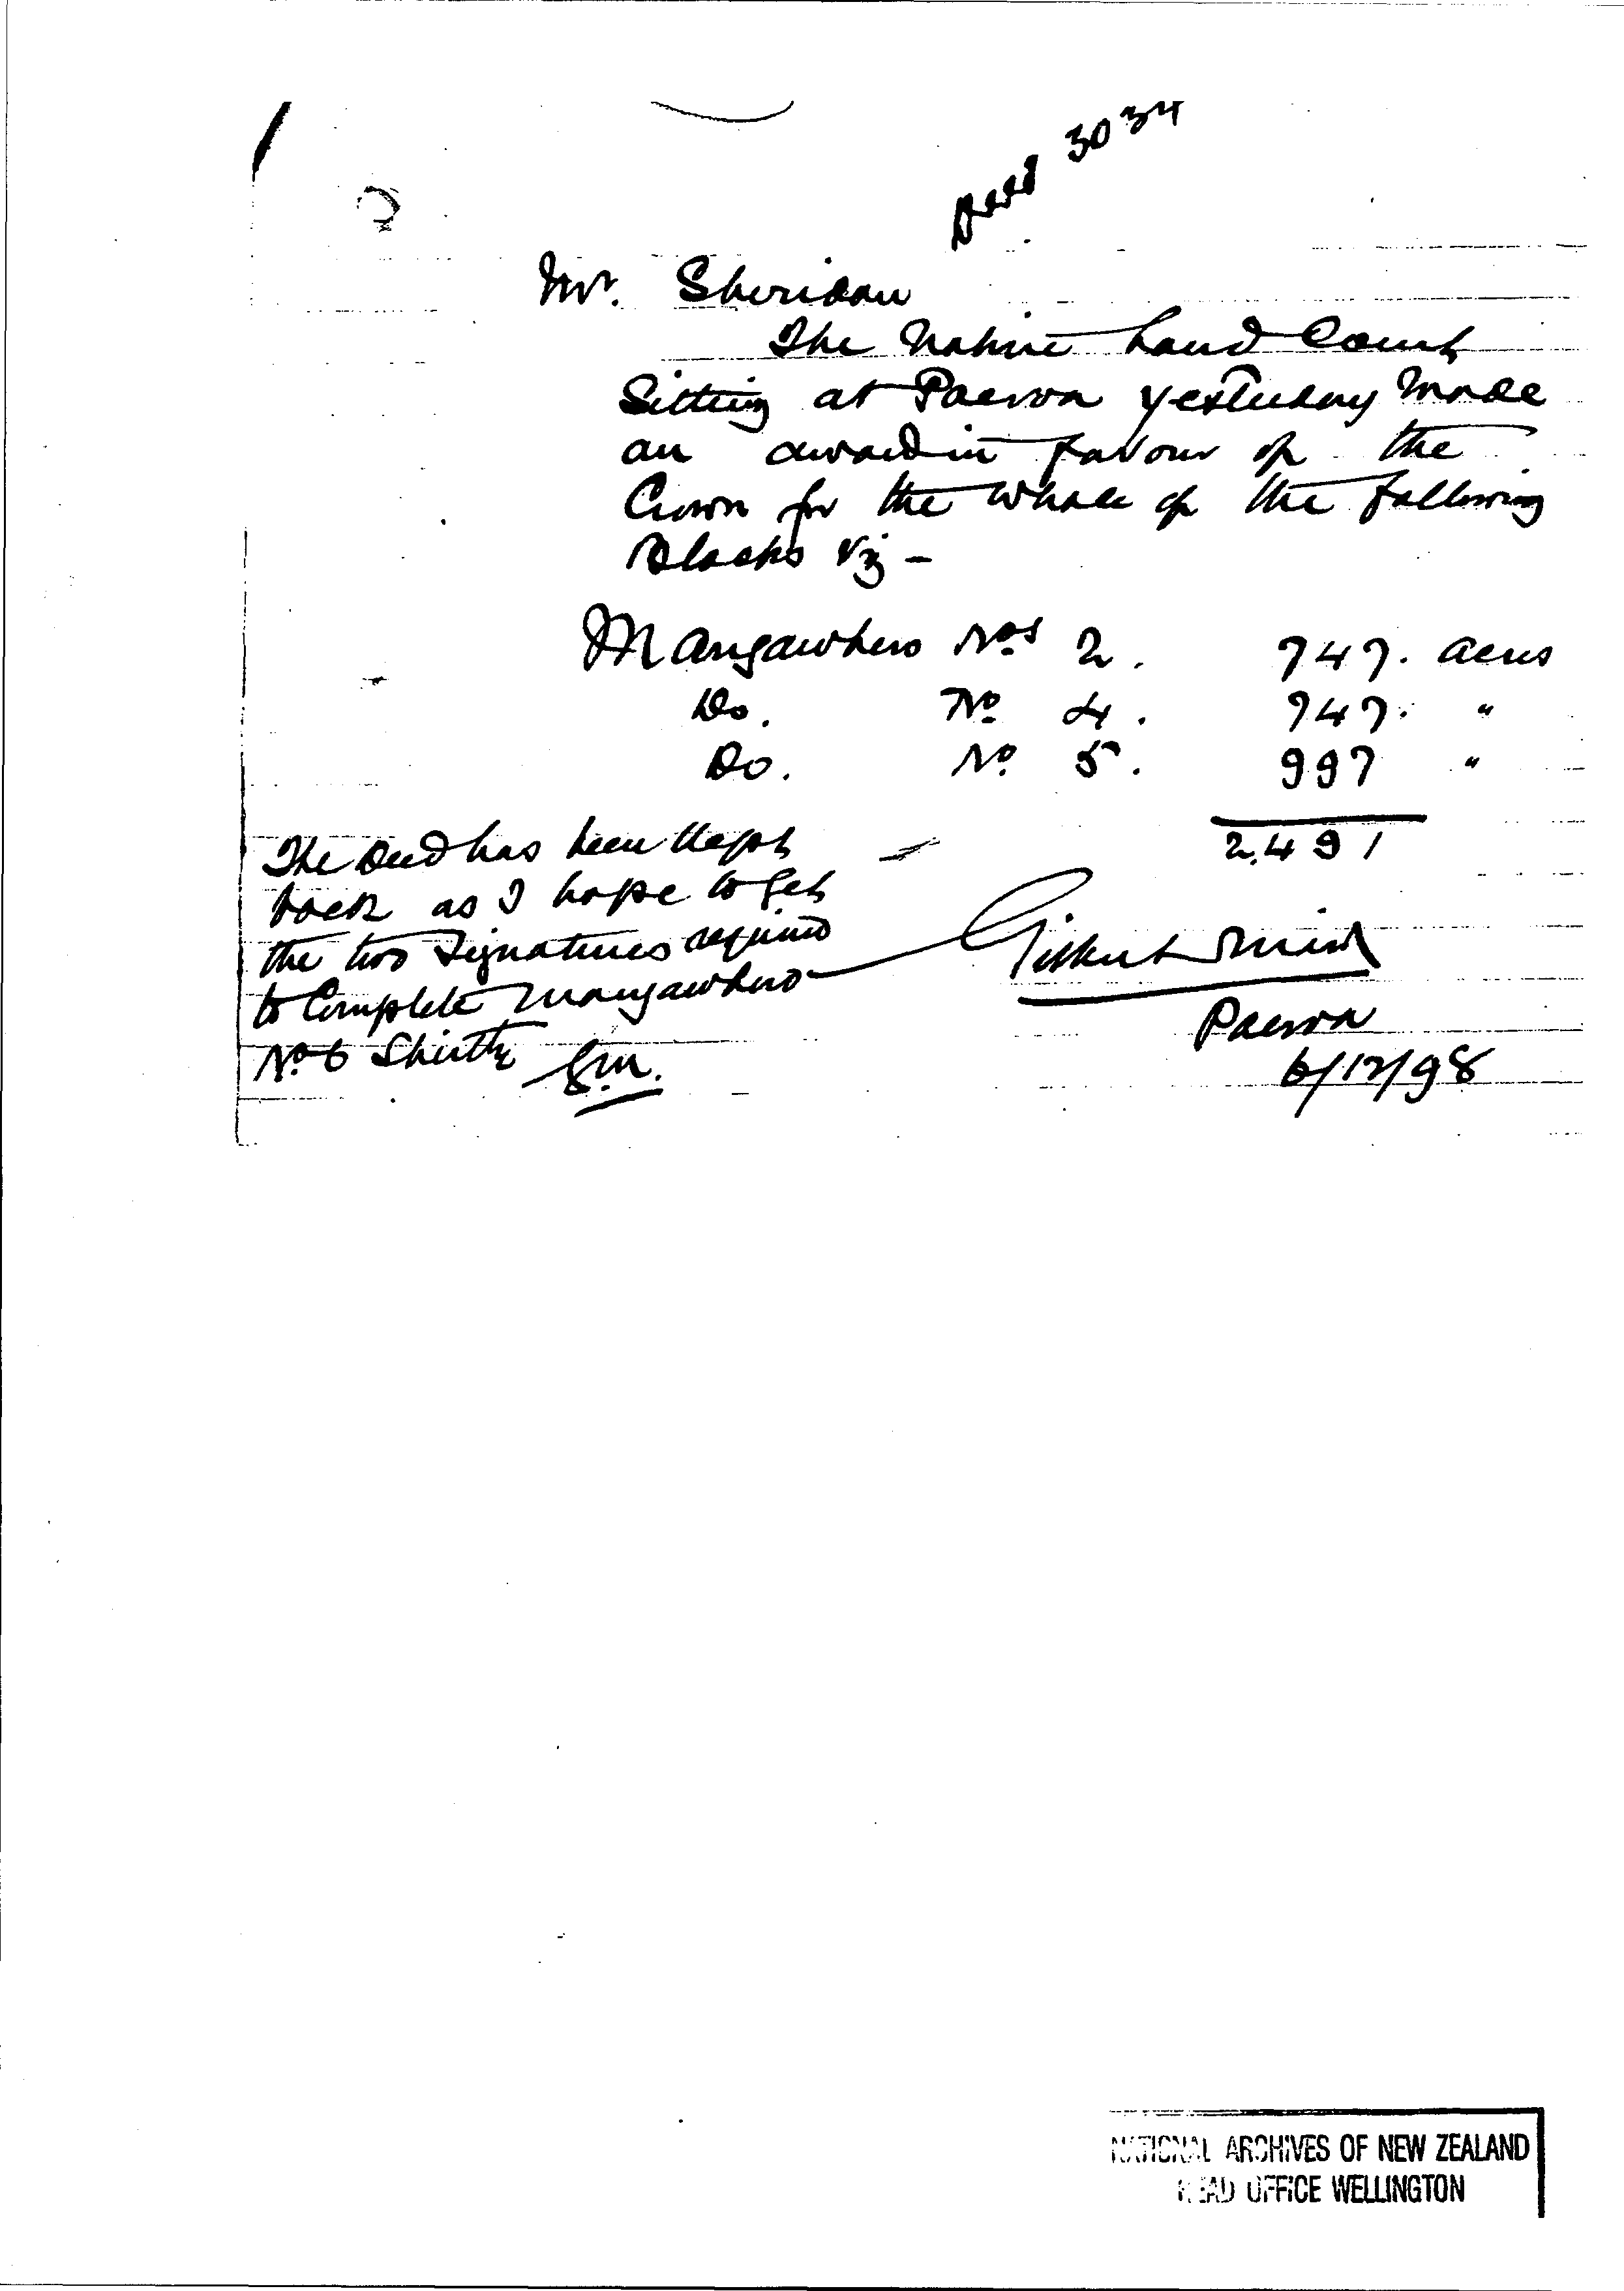 Deed 3034
Mr. Sheridan
The Native Land Court
Sitting at Paeroa yesterday made
an award in favour of the
Crown for the whole of the following
Blocks viz –
Mangawhero Nos 2. 747. acres
Do. No 4. 747. "
Do. No 5. 997 "
2,491
The Deed has been kept
back as I hope to get
the two signatures required
to Complete Mangawhero
No 6 Shortly G.M.
Gilbert Mair
Paeroa
6/12/98
NATIONAL ARCHIVES OF NEW ZEALAND
HEAD OFFICE WELLINGTON